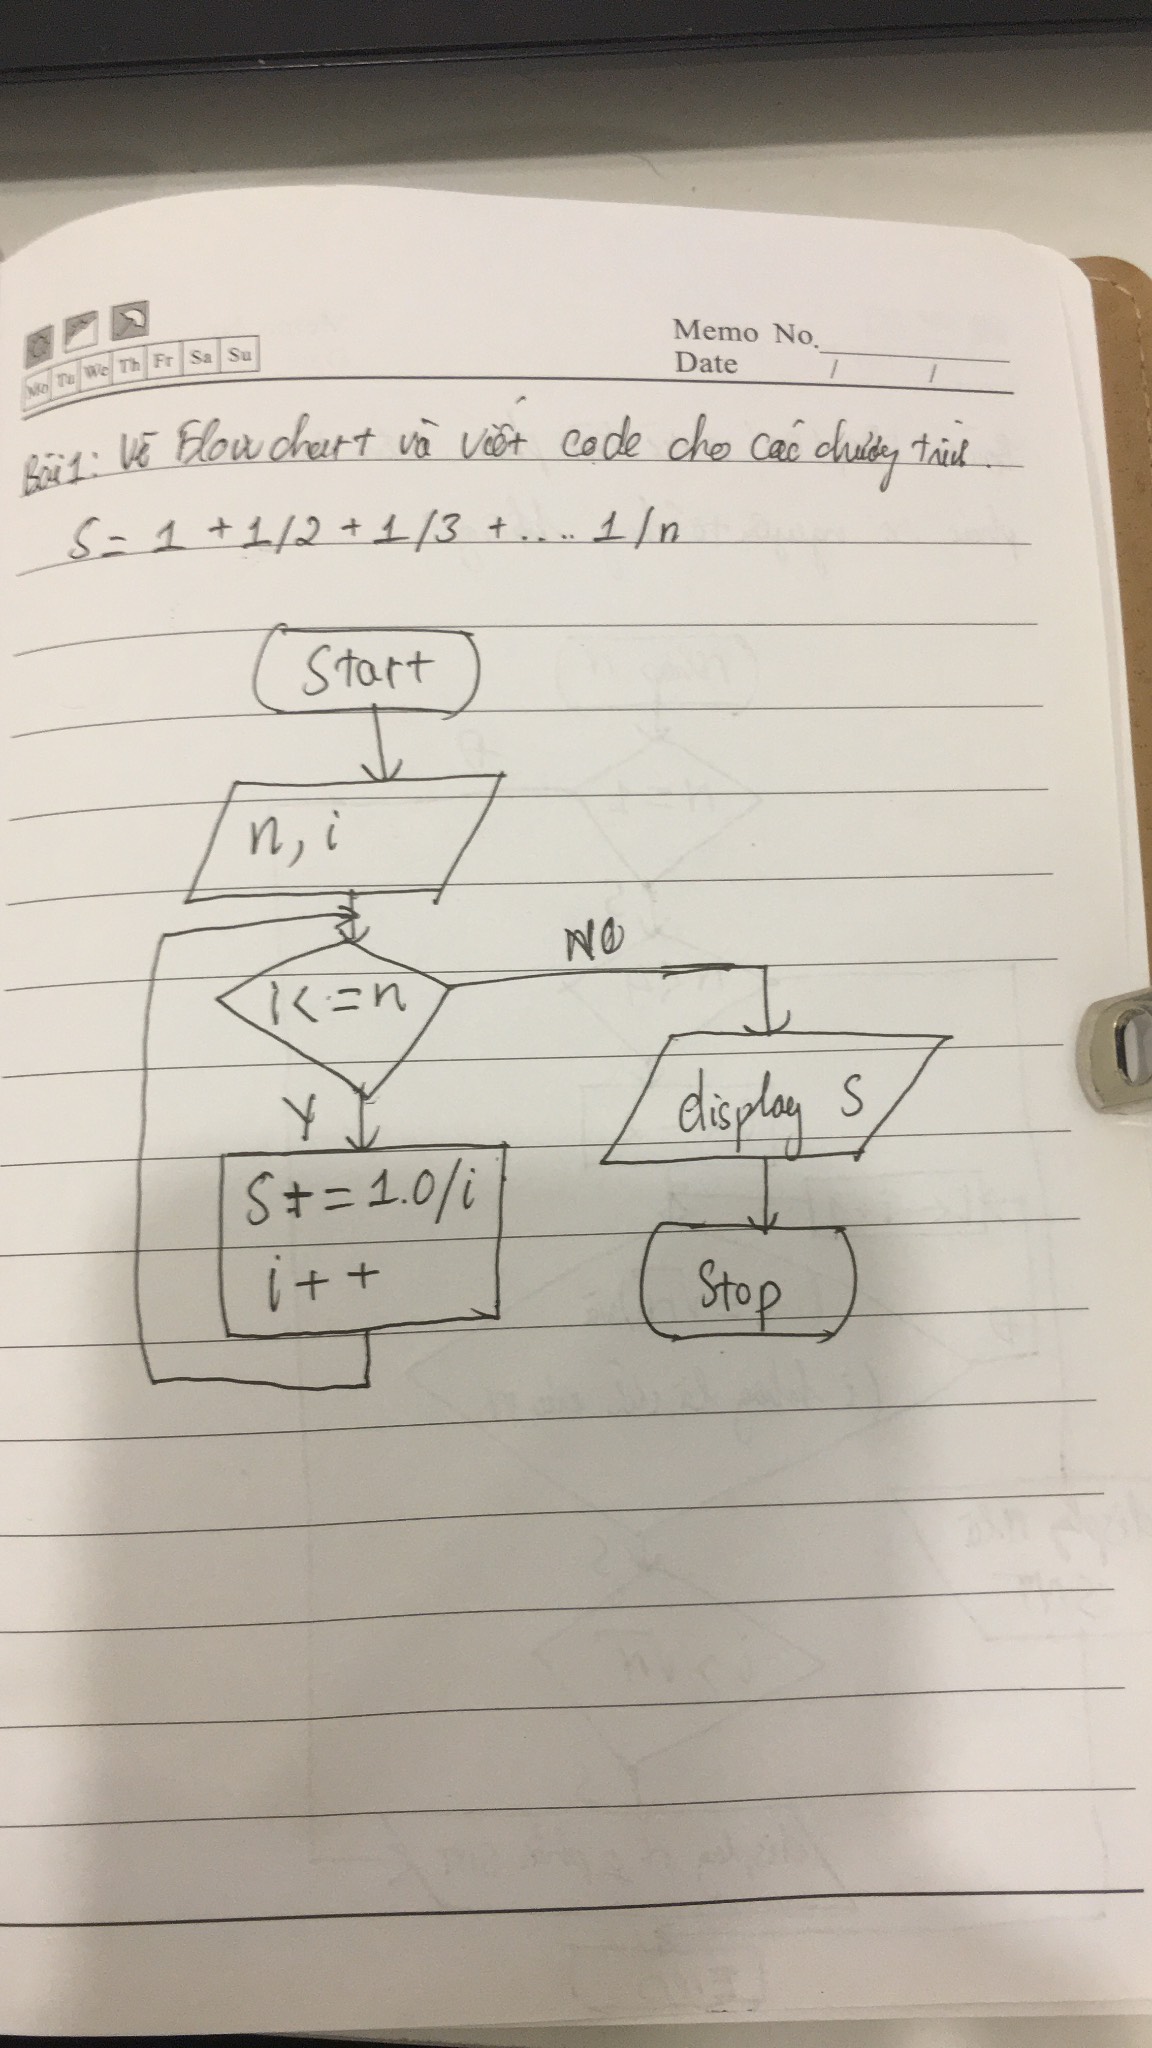 Mo Tu We Th Fr Sa Su
Memo No.
Date / /
Bài 1: Vẽ Flowchart và viết code cho các chương trình.
S = 1 + 1/2 + 1/3 + .... 1/n
Start
n, i
i<=n
NO
Y
S+=1.0/i
i++
display S
Stop